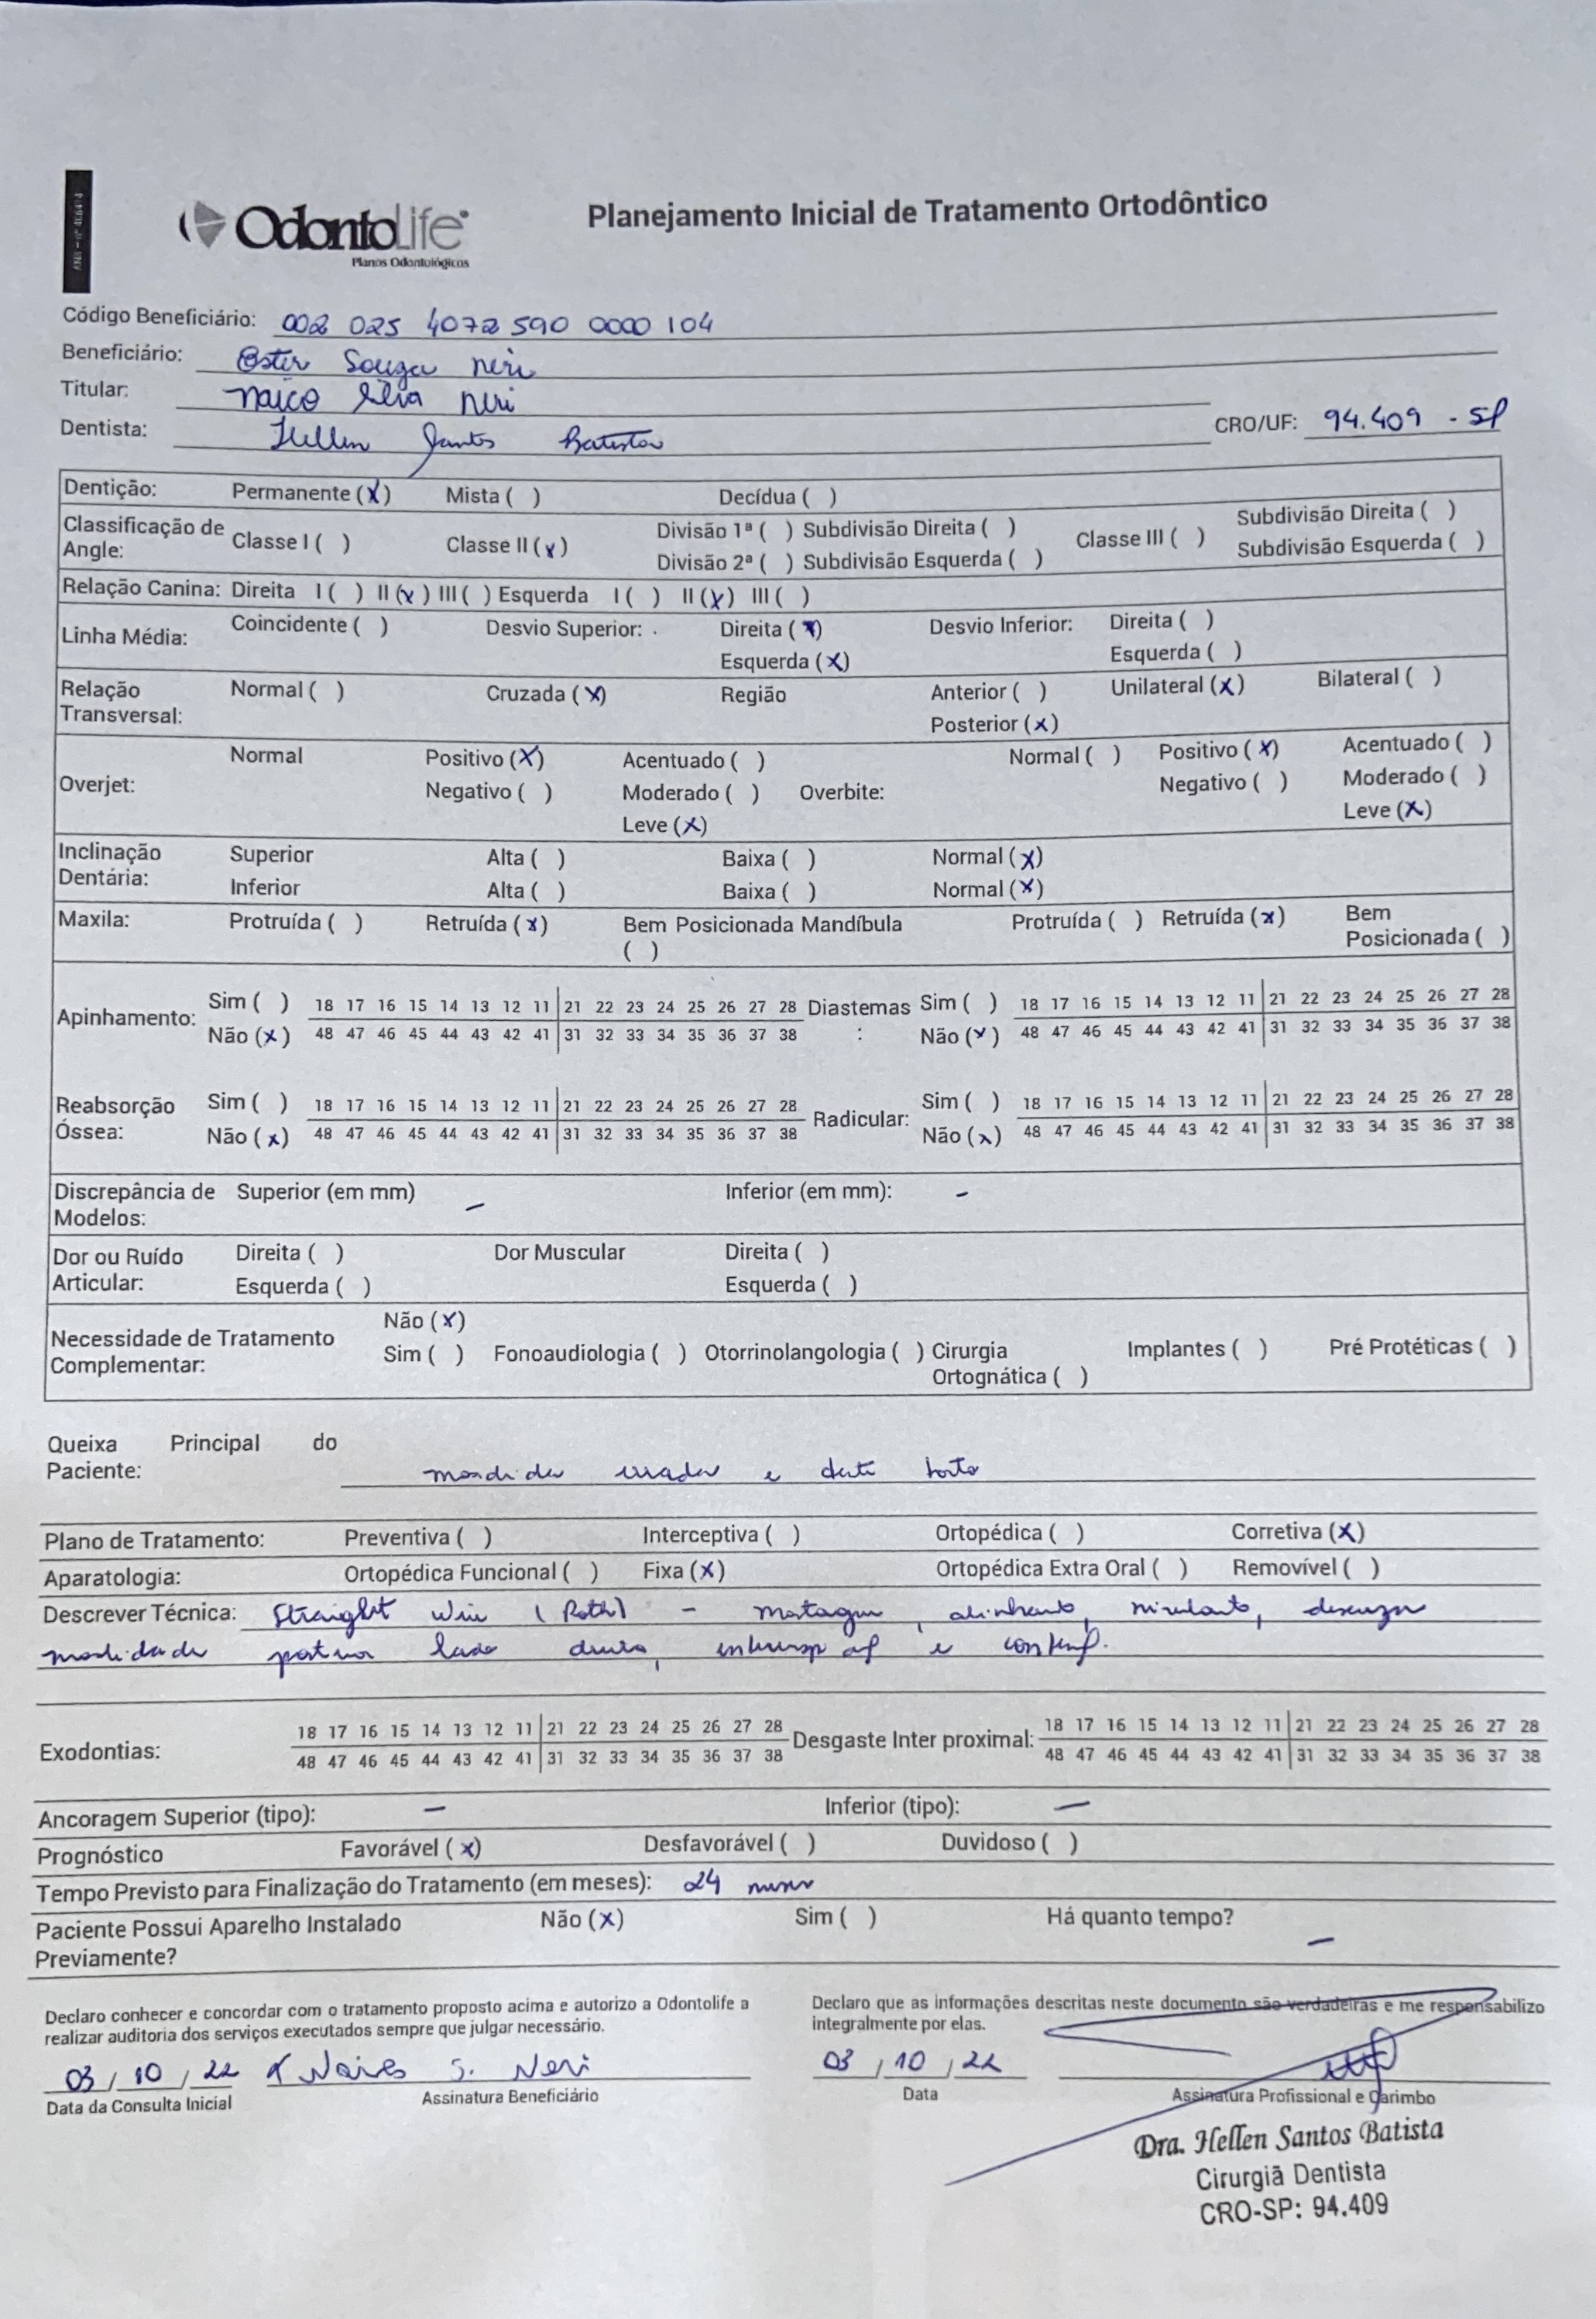 OdontoLife
Planos Odontológicos
Planejamento Inicial de Tratamento Ortodôntico
Código Beneficiário: 002 025 4072 590 0000 104
Beneficiário: Ester Souza Neri
Titular: Silva Neri
Dentista: Hellen Santos Batista CRO/UF: 94.409 - SP
Dentição: Permanente (X) Mista ( ) Decídua ( )
Classificação de Angle: Classe I ( ) Classe II (x) Divisão 1ª ( ) Subdivisão Direita ( ) Classe III ( ) Subdivisão Direita ( )
Divisão 2ª ( ) Subdivisão Esquerda ( ) Subdivisão Esquerda ( )
Relação Canina: Direita I ( ) II (x) III ( ) Esquerda I ( ) II (x) III ( )
Linha Média: Coincidente ( ) Desvio Superior: Direita (x) Desvio Inferior: Direita ( )
Esquerda (x) Esquerda ( )
Relação Transversal: Normal ( ) Cruzada (x) Região Anterior ( ) Unilateral (x) Bilateral ( )
Posterior (x)
Overjet: Normal Positivo (X) Acentuado ( ) Overbite: Normal ( ) Positivo (x) Acentuado ( )
Negativo ( ) Moderado ( ) Negativo ( ) Moderado ( )
Leve (x) Leve (x)
Inclinação Dentária: Superior Alta ( ) Baixa ( ) Normal (x)
Inferior Alta ( ) Baixa ( ) Normal (x)
Maxila: Protruída ( ) Retruída (x) Bem Posicionada ( ) Mandíbula Protruída ( ) Retruída (x) Bem Posicionada ( )
Apinhamento: Sim ( ) 18 17 16 15 14 13 12 11 21 22 23 24 25 26 27 28 Diastemas: Sim ( ) 18 17 16 15 14 13 12 11 21 22 23 24 25 26 27 28
Não (x) 48 47 46 45 44 43 42 41 31 32 33 34 35 36 37 38 Não (x) 48 47 46 45 44 43 42 41 31 32 33 34 35 36 37 38
Reabsorção Óssea: Sim ( ) 18 17 16 15 14 13 12 11 21 22 23 24 25 26 27 28 Radicular: Sim ( ) 18 17 16 15 14 13 12 11 21 22 23 24 25 26 27 28
Não (x) 48 47 46 45 44 43 42 41 31 32 33 34 35 36 37 38 Não (x) 48 47 46 45 44 43 42 41 31 32 33 34 35 36 37 38
Discrepância de Modelos: Superior (em mm) - Inferior (em mm): -
Dor ou Ruído Articular: Direita ( ) Dor Muscular Direita ( )
Esquerda ( ) Esquerda ( )
Necessidade de Tratamento Complementar: Não (x)
Sim ( ) Fonoaudiologia ( ) Otorrinolangologia ( ) Cirurgia Ortognática ( ) Implantes ( ) Pré Protéticas ( )
Queixa Principal do Paciente: mordida errada e dente torto
Plano de Tratamento: Preventiva ( ) Interceptiva ( ) Ortopédica ( ) Corretiva (x)
Aparatologia: Ortopédica Funcional ( ) Fixa (x) Ortopédica Extra Oral ( ) Removível ( )
Descrever Técnica: Straight Wire (Roth) - montagem, alinhamento, nivelamento, descruzar
mordida de posterior lado direito, e
Exodontias: 18 17 16 15 14 13 12 11 21 22 23 24 25 26 27 28 Desgaste Inter proximal: 18 17 16 15 14 13 12 11 21 22 23 24 25 26 27 28
48 47 46 45 44 43 42 41 31 32 33 34 35 36 37 38 48 47 46 45 44 43 42 41 31 32 33 34 35 36 37 38
Ancoragem Superior (tipo): - Inferior (tipo): -
Prognóstico Favorável (x) Desfavorável ( ) Duvidoso ( )
Tempo Previsto para Finalização do Tratamento (em meses): 24 meses
Paciente Possui Aparelho Instalado Previamente? Não (x) Sim ( ) Há quanto tempo? -
Declaro conhecer e concordar com o tratamento proposto acima e autorizo a Odontolife a
realizar auditoria dos serviços executados sempre que julgar necessário.
Declaro que as informações descritas neste documento são verdadeiras e me responsabilizo
integralmente por elas.
03/10/22 S. Neri
03/10/22
Data da Consulta Inicial Assinatura Beneficiário Data Assinatura Profissional e Carimbo
Dra. Hellen Santos Batista
Cirurgiã Dentista
CRO-SP: 94.409